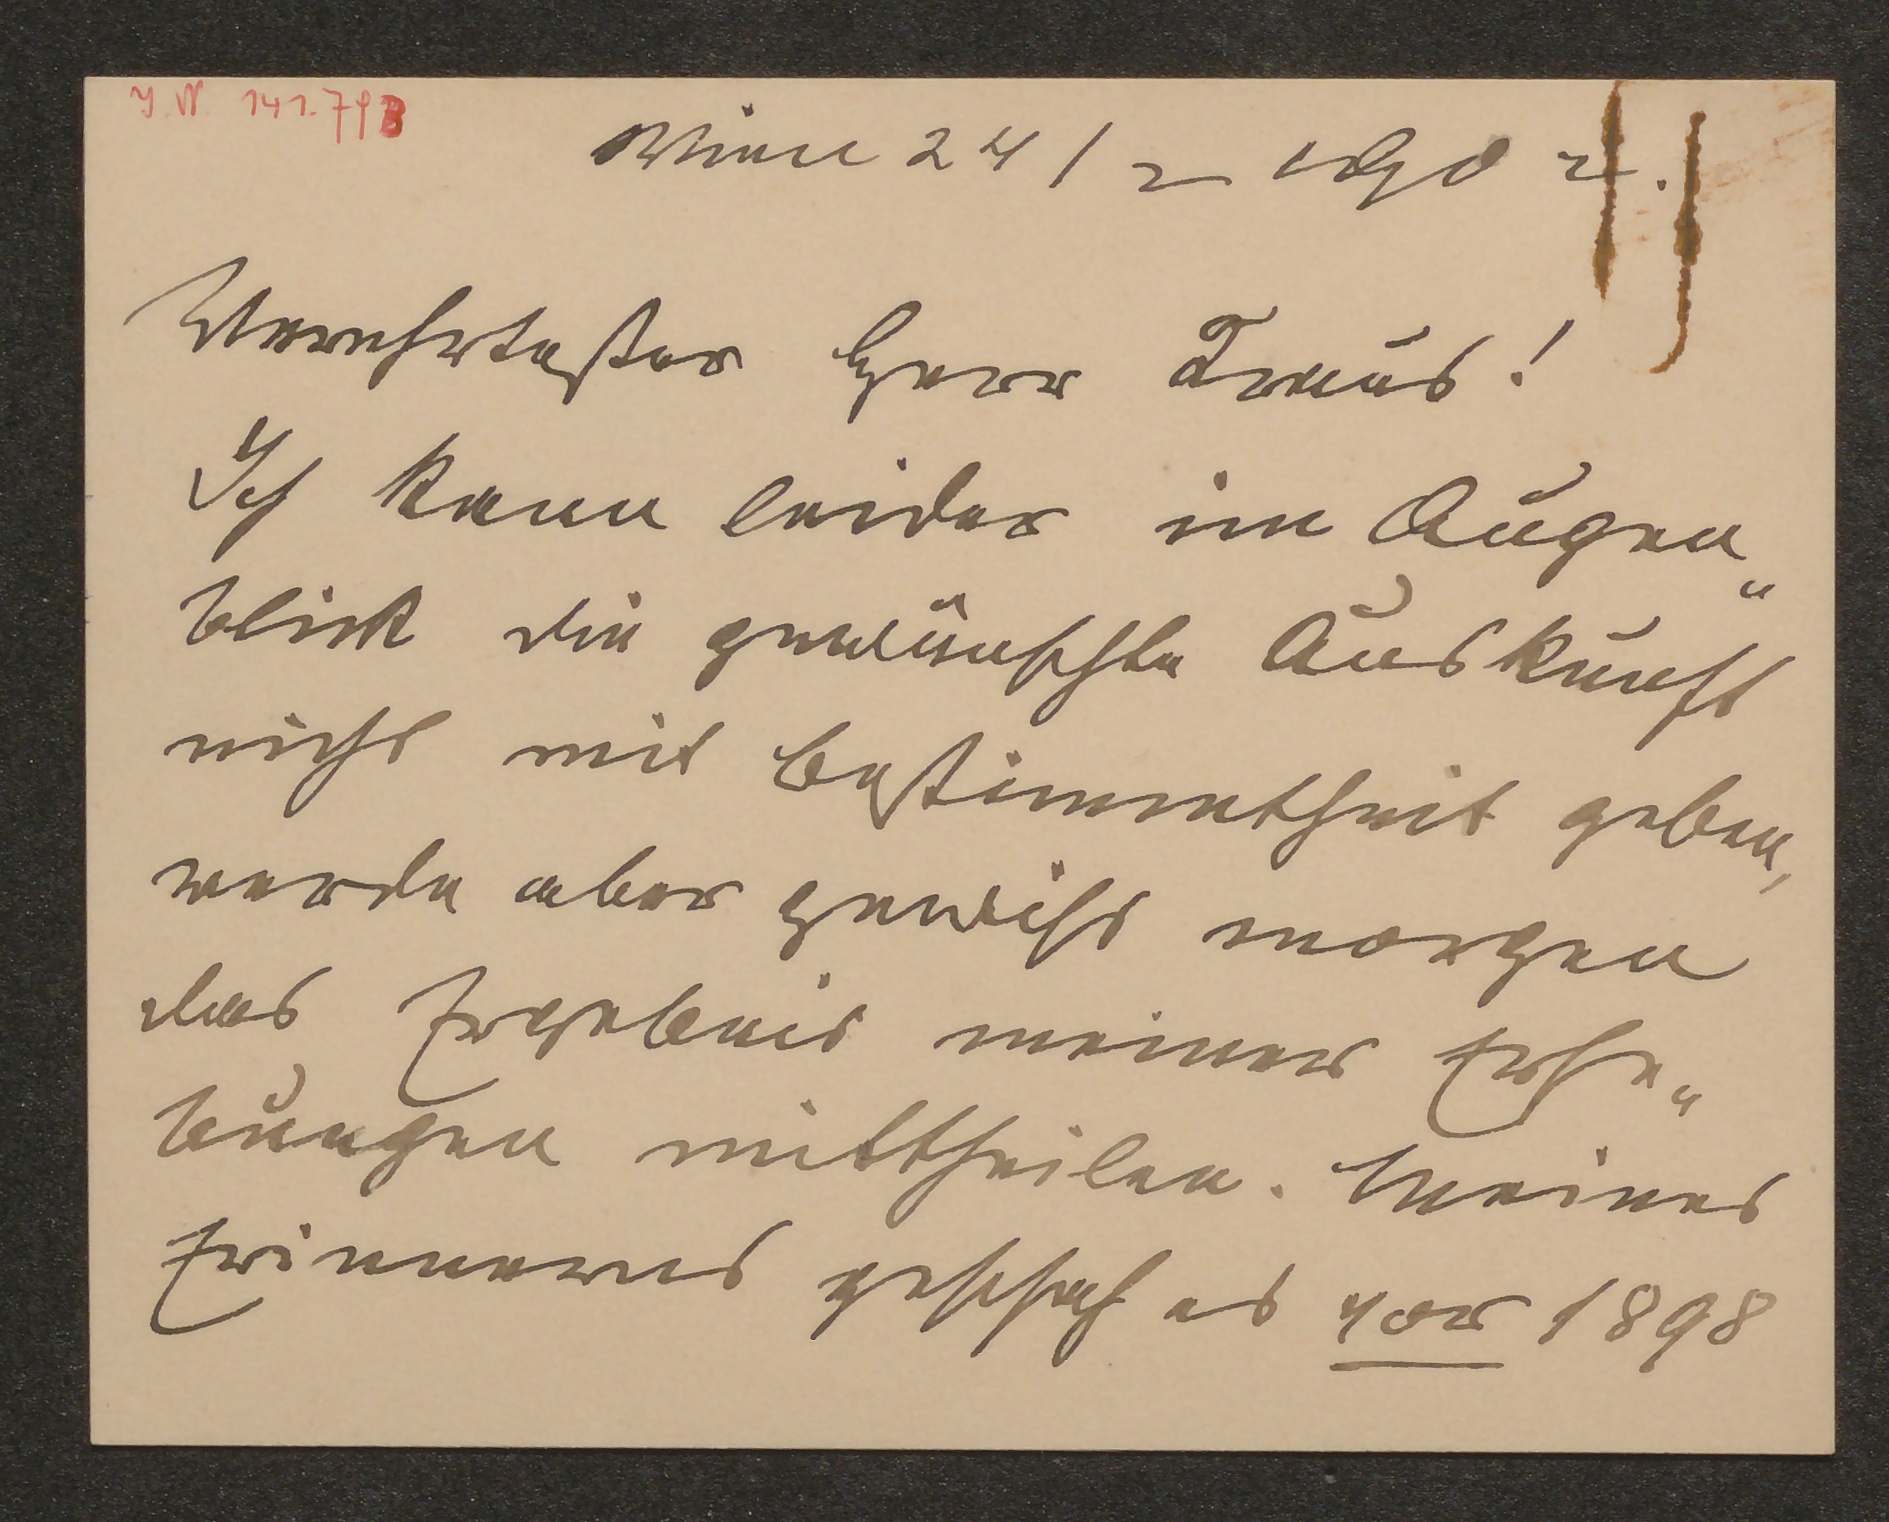 I N 141.793
Wien 24/2 190 2.
Verehrtester Herr Traus!
Ich kann leider im Augen„
blick die gewünschte Auskunft
nicht mit Bestimmtheit geben,
werde aber gewiss morgen
das Ergebnis meiner Erhe„
bungen mittheilen. Meines
Erinnerns geschah es vor 1898